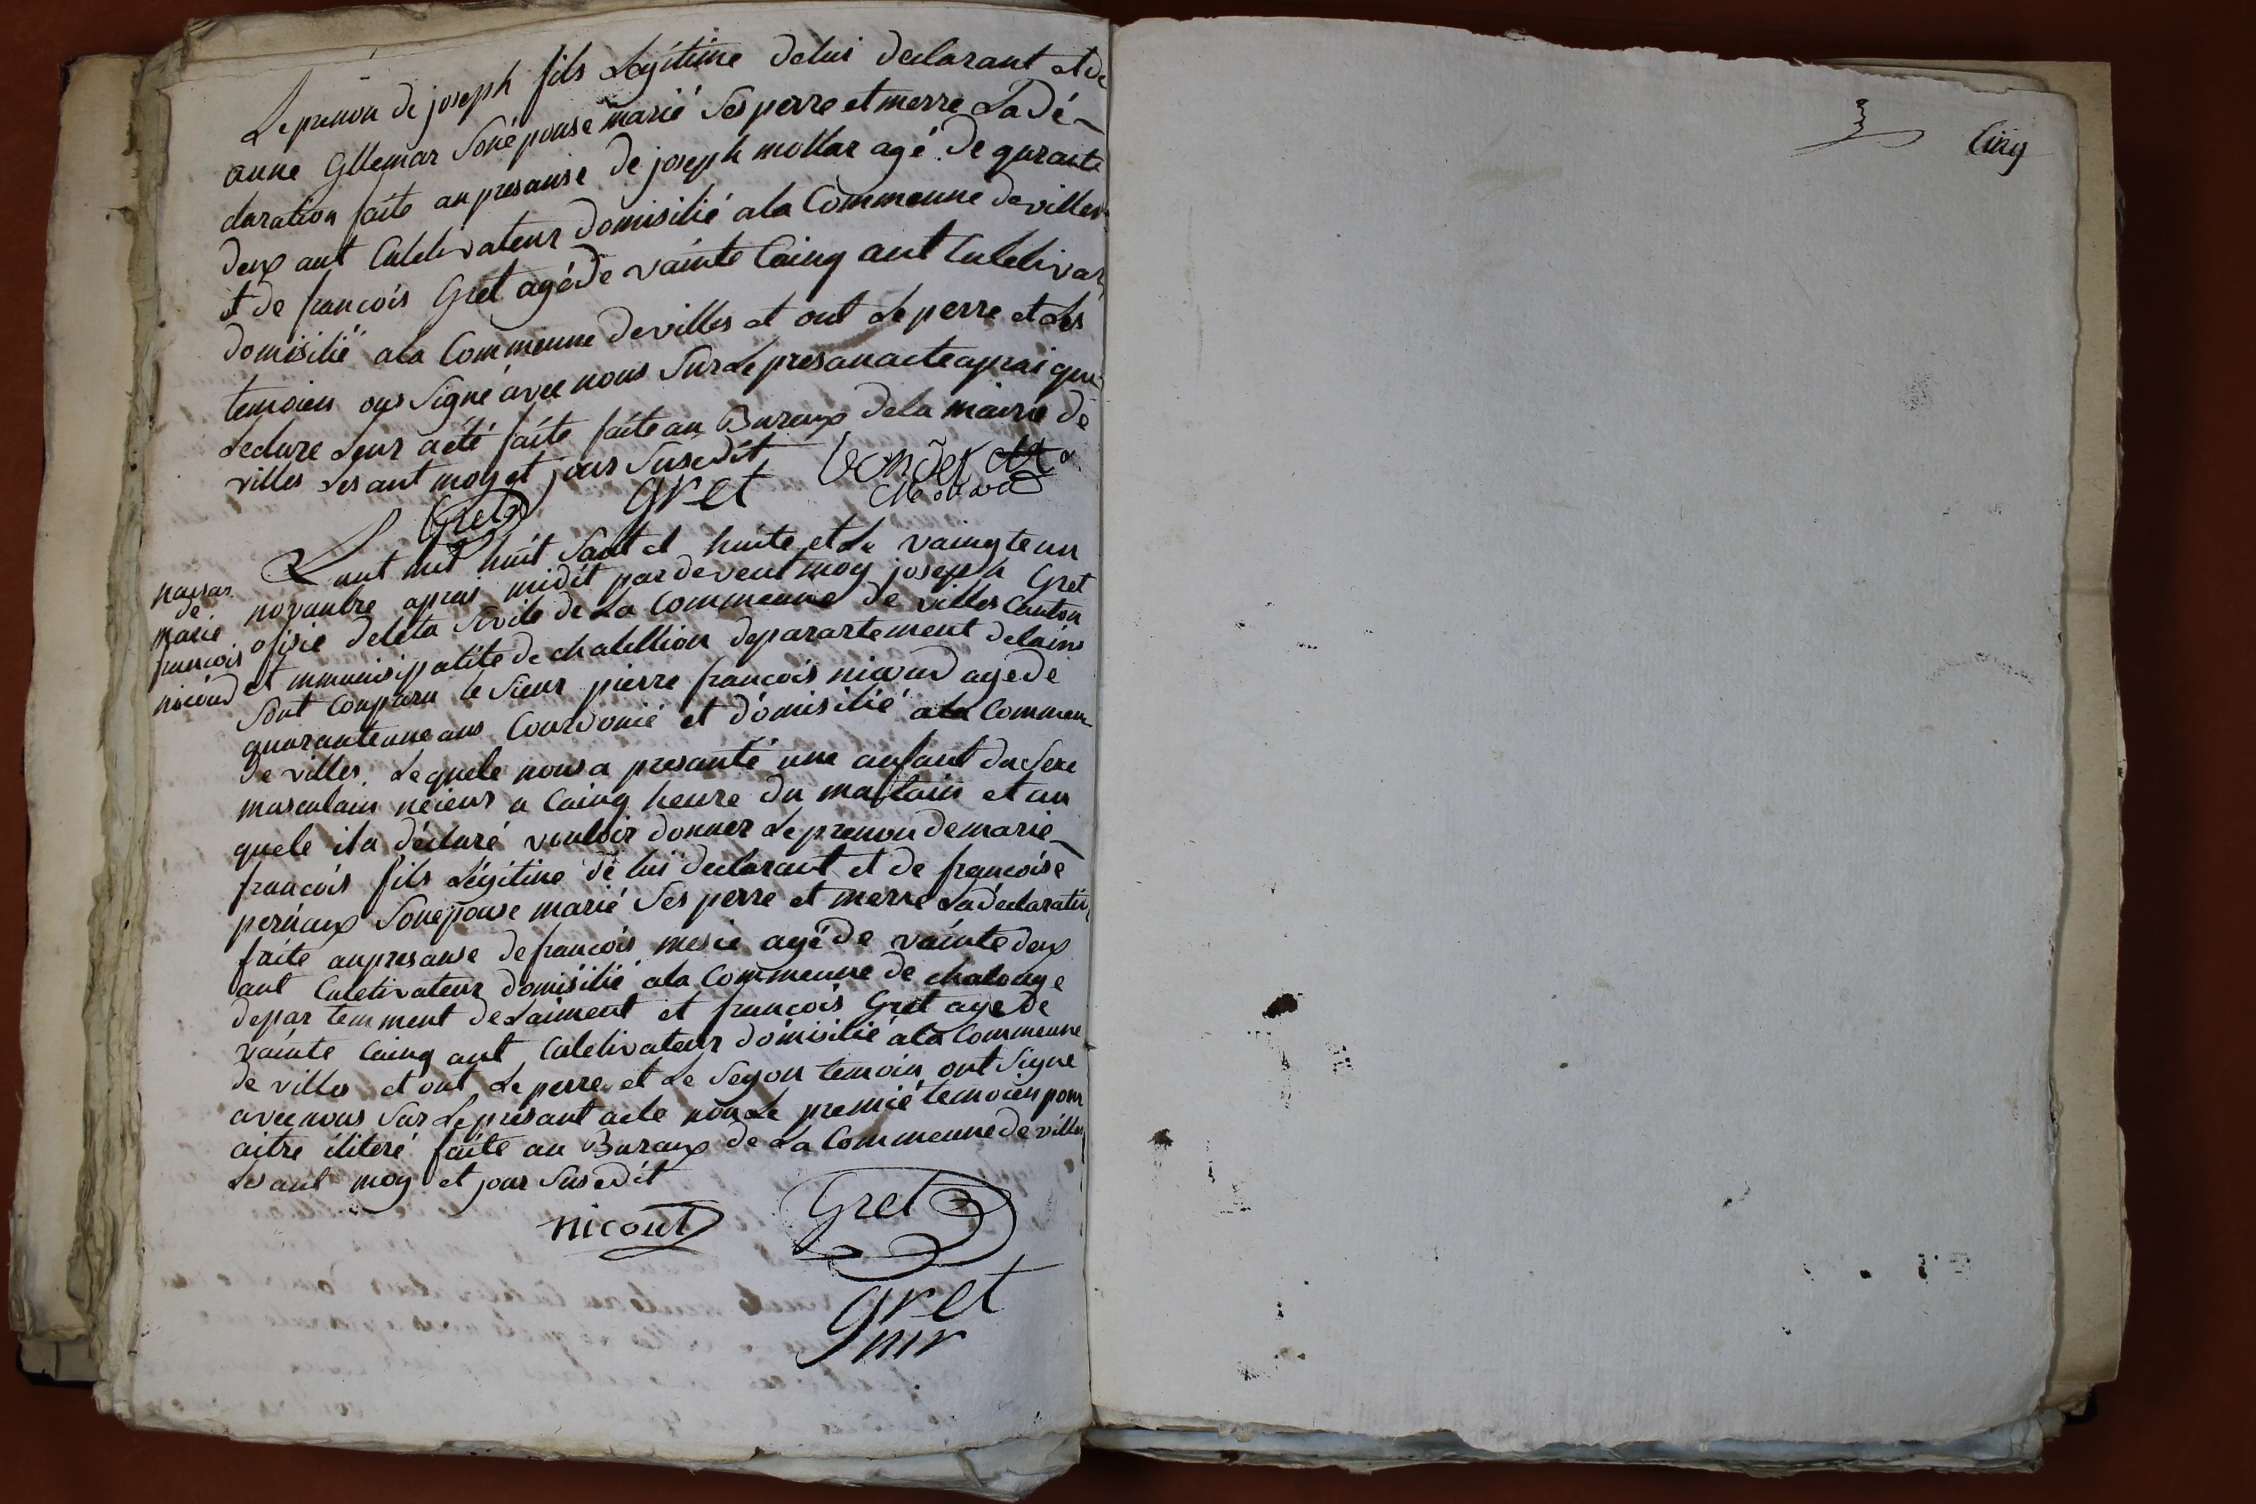 Le prenon de joseph fils Légitime delui declarant et de
anne Gllemar Sonépouse marié Ses perre et merre La dé-
claration faite anpresanse de joseph mollar agé de qurante
deux ant Culetivateur domisilié ala Commeunne de villes
et de francois Gret agé de vainte Cainq ant Culetivar
domisilié ala Commeunne devilles et ont Le perre et Les
temoien oys Signé avec nous Sur Le presan acte aprai que
Lecture Leur a été faite faite au Bureaux dela mairie de
villes Les ant moy et jour Susedit
Gret
gret
nausas
de
marie
francois
nicoud
Lant mil huit Sant et huite et Le vaingteun
novanbre aprais midit pardevent moy joseph Gret
ofisié deleta Sivile de La Commeunne de villes Canton
et mmunisipalité de chatillion deparartement delains
Sont Conparu le Sieur pierre francois nicoud agé de
quaranteunne ans Courdonié et domisilié ala Commeu-
de villes. Lequele nous a presanté une anfant du Sexe
masculain néieur a Cainq heure du mattain et au
quele il a déclaré vouloir donner Le prenon de marie-
francois fils Légitime de lui declarant et de francoise
pernaux Sonepouse marié Ses perre et merre La déclaratio
faite anpresanse de francois mesie agé de vainte deux
ant Culetivateur domisilié ala Commeunne de chalonge
depar temment de Laiment et francois Gret agé de
vainte Cainq ant Culetivateur domisilié ala Commeunne
de villes et ont Le perre et Le Segon temoin ont Signe
avec nous Sur Le présant acte non Le premié temoien pour
aitre iliteré faite au Bureaux de La Commeunne de villes
Les ant moy et jour Susedit
nicout
Gret
gret
mr
Cinq